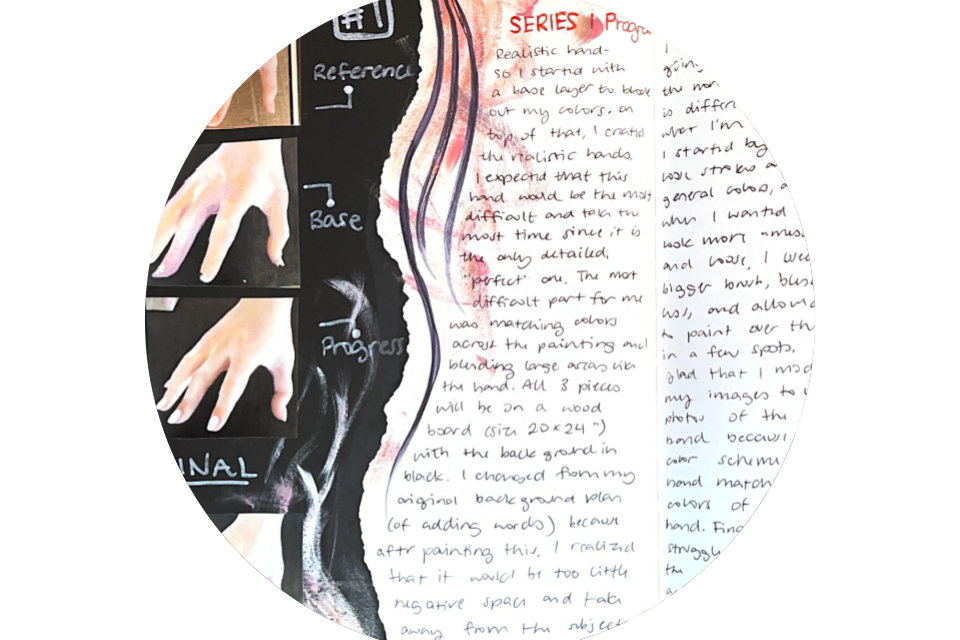 #1
Reference
Base
Progress
INAL
SERIES 1 Progr
Realistic hand-
so I started with
a base layer to block
out my colors. on
top of that, I created
the realistic hands.
I expected that this
hand would be the most
difficult and take the
most time since it is
the only detailed,
"perfect" one. The most
difficult part for me
was matching colors
across the painting and
blending large areas like
the hand. All 3 pieces
will be on a wood
board (size 20x24")
with the background in
black. I changed from my
original background plan
(of adding words) because
after painting this, I realized
that it would be too little
negative space and take
away from the subject
going
the mor
is differ
what I'm
I started by
loose strokes a
general colors, a
when I wanted
look more "mess
and loose, I used
bigger brush, blend
less, and allowed
to paint over th
in a few spots.
glad that I mad
my images to
photos of the
hand because
color scheme
hand match
colors of
hand. Fina
struggle
the